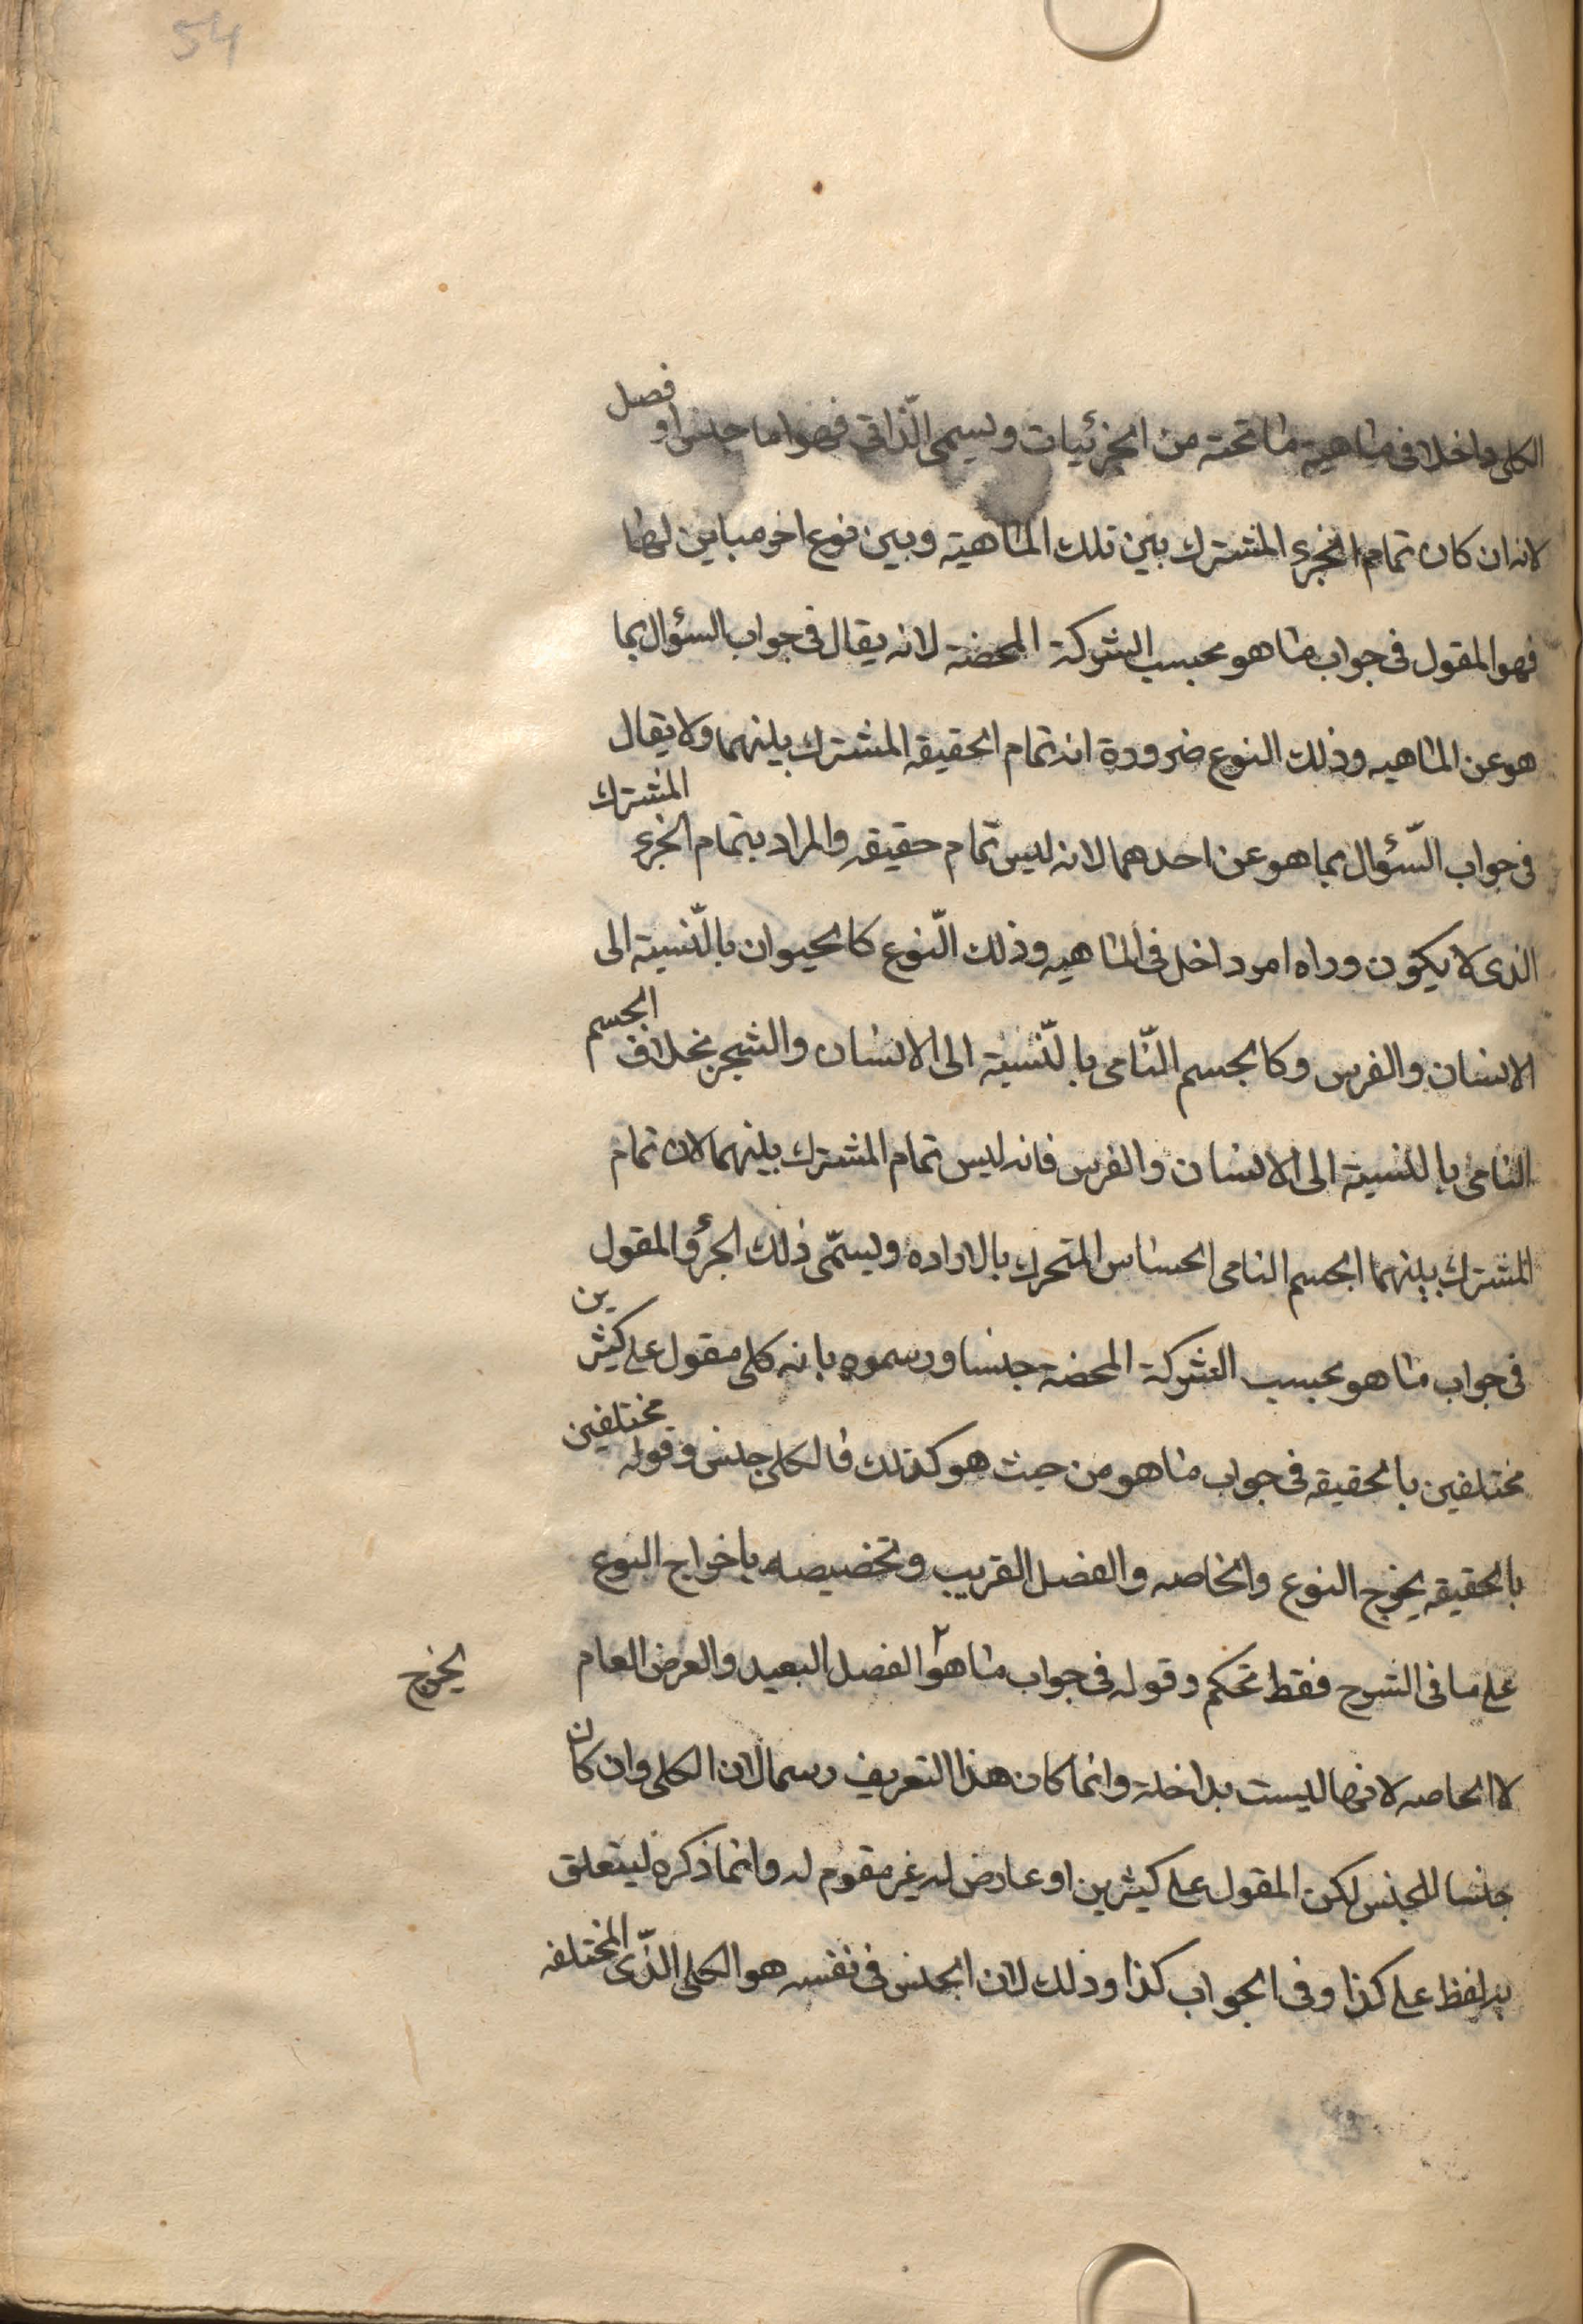 54
الكلى داخلا فى ماهية ما تحته من الجزئيات ويسمى الذّاتى فهو اما جنس او فصل
لانه ان كان تمام الجزء المشترك بين تلك الماهية وبين نوع اخر مباين لها
فهو المقول فى جواب ما هو بحسب الشركة المحضة لانه يقال فى جواب السؤال بما
هو عن الماهيه وذلك النوع ضرورة انه تمام الحقيقه المشترك بينهما ولا يقال
فى جواب السّؤال بما هو عن احدهما لانه ليس تمام حقيقه والمراد بتمام الجزء المشترك
الذى لا يكون وراه امر داخل فى الماهيه وذلك النّوع كالحيوان بالنّسبة الى
الانسان والفرس وكالجسم النّامى بالنّسبة الى الانسان والشجر بخلاف الجسم
النامى بالنسبة الى الانسان والفرس فانه ليس تمام المشترك بينهما لان تمام
المشترك بينهما الجسم النامى الحساس المتحرك بالاراده ويسمّى ذلك الجزؤ المقول
فى جواب ما هو بحسب الشركة المحضة جنسا ورسموه بانه كلى مقول على كثيرين
مختلفين بالحقيقه فى جواب ما هو من حيث هو كذلك فالكلى جنس وقوله مختلفين
بالحقيقه يخرج النوع والخاصه والفصل القريب وتخصيصه باخراج النوع
على ما فى الشرح فقط تحكم وقوله فى جواب ما هو ٢ الفصل البعيد والعرض العام
يخرج
لا الخاصه لانها ليست بداخلة وانما كان هذا التعريف رسما لان الكلى وان كان
جنسا للجنس لكن المقول على كثيرين او عارض له غير مقوم له وانما ذكره ليتعلق
به لفظ على كذا وفى الجواب كذا وذلك لان الجنس فى نفسه هو الكلى الذّى المختلفه